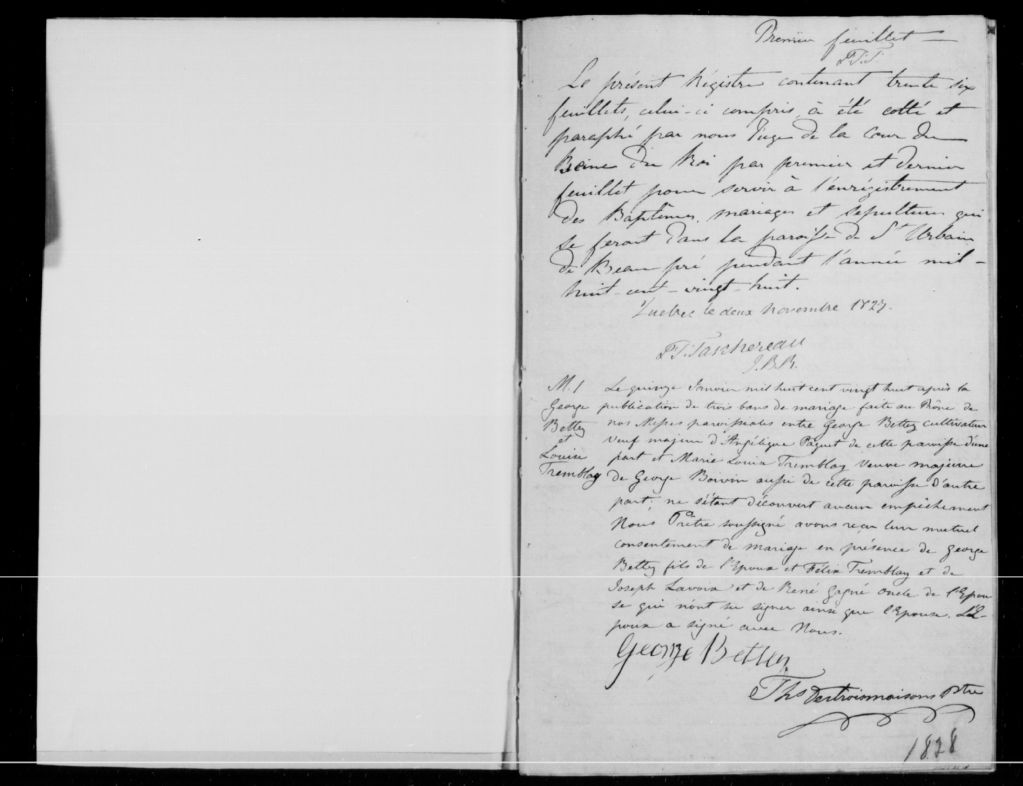 Premier feuillet
P.T.T.
Le présent Régistre contenant trente six
feuillets, celui-ci compris, à été cotté et
paraphé par nous Juge de la Cour du
Banc du Roi par premier et dernier
feuillet pour servir à l'enrégistrement
des Baptêmes, mariages et sépultures qui
se feront dans la paroisse de St Urbain
de Beau pré pendant l'année mil-
huit-cent-vingt-huit.
Québec le deux Novembre 1827.
P. T. Taschereau
J.B.R.
M. 1
George
Bettez
et
Louise
Tremblay
Le quinze Janvier mil huit cent vingt huit après la
publication de trois bans de mariage faite au Prône de
nos Messes paroissiales entre George Bettez cultivateur
veuf majeur d'Angélique Paquet de cette paroisse d'une
part et Marie Louise Tremblay veuve majeure
de George aussi de cette paroisse d'autre
part, ne s'étant découvert aucun empêchement
Nous Prêtre soussigné avons reçu leur mutuel
consentement de mariage en présence de George
Bettez fils de l'Epoux et Félix Tremblay et de
Joseph Lavoix et de René Gagné oncle de l'Epou
se qui n'ont su signer ainsi que l'Epouse. L'E-
poux a signé avec Nous.
George Bettez
Ths Destroismaisons Ptre
1828